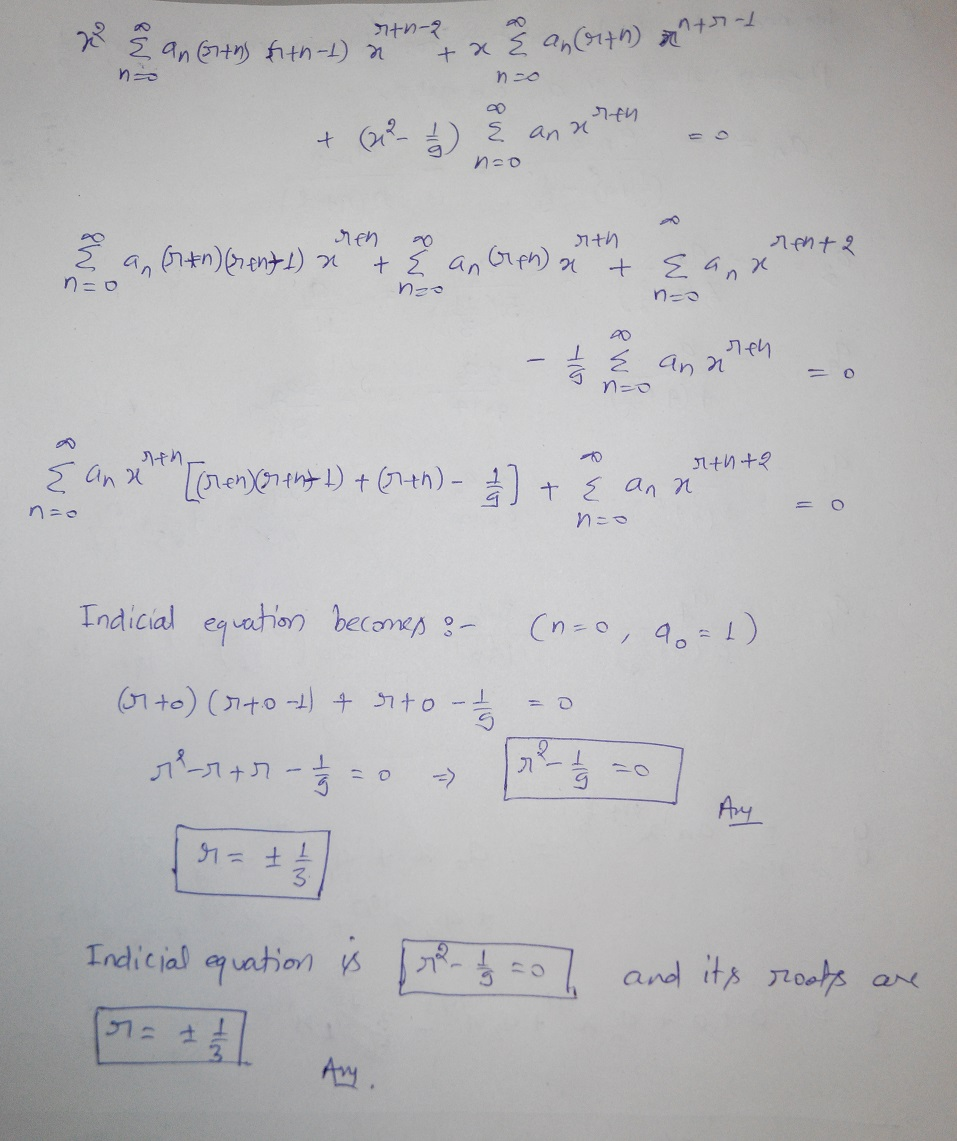 x² ∞Σn=0 an (r+n) (r+n-1) x^(r+n-2) + x ∞Σn=0 an (r+n) x^(n+r-1)
+ (x² - 1/9) ∞Σn=0 an x^(r+n) = 0
∞Σn=0 an (r+n)(r+n-1) x^(r+n) + ∞Σn=0 an (r+n) x^(r+n) + ∞Σn=0 an x^(r+n+2)
- 1/9 ∞Σn=0 an x^(r+n) = 0
∞Σn=0 an x^(r+n) [(r+n)(r+n-1) + (r+n) - 1/9] + ∞Σn=0 an x^(r+n+2) = 0
Indicial equation becomes :- (n=0, a₀ = 1)
(r+0) (r+0-1) + r+0 - 1/9 = 0
r² - r + r - 1/9 = 0 ⇒ r² - 1/9 = 0
Ans
r = ± 1/3
Indicial equation is r² - 1/9 = 0 and its roots are
r = ± 1/3
Ans.